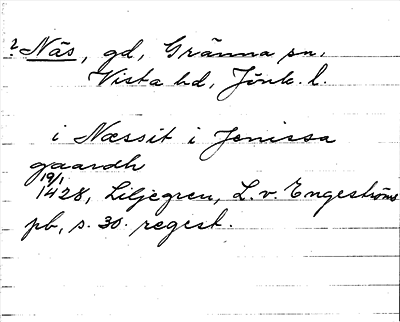 ? Näs, gd, Gränna sn.
Vista hd, Jönk. l.
i Næssit i Jenissa
gaardh
19/1
1428, Liljegren, L. v. Engeströms
pb, s. 30. regest.